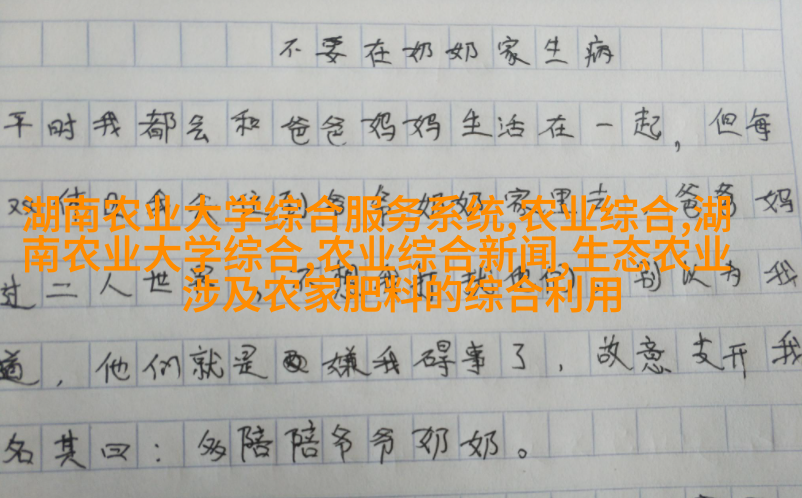 不要在奶奶家生病
平时我都会和爸爸妈妈生活在一起，但每
湖南农业大学综合服务系统,农业综合,湖
南农业大学综合,农业综合新闻,生态农业
涉及农家肥料的综合利用
奶奶家里去，爸爸妈
过二人世界，不想我打扰他们。别以为我
道，他们就是嫌我碍事了，故意支开我
名其曰：多陪陪爷爷奶奶。